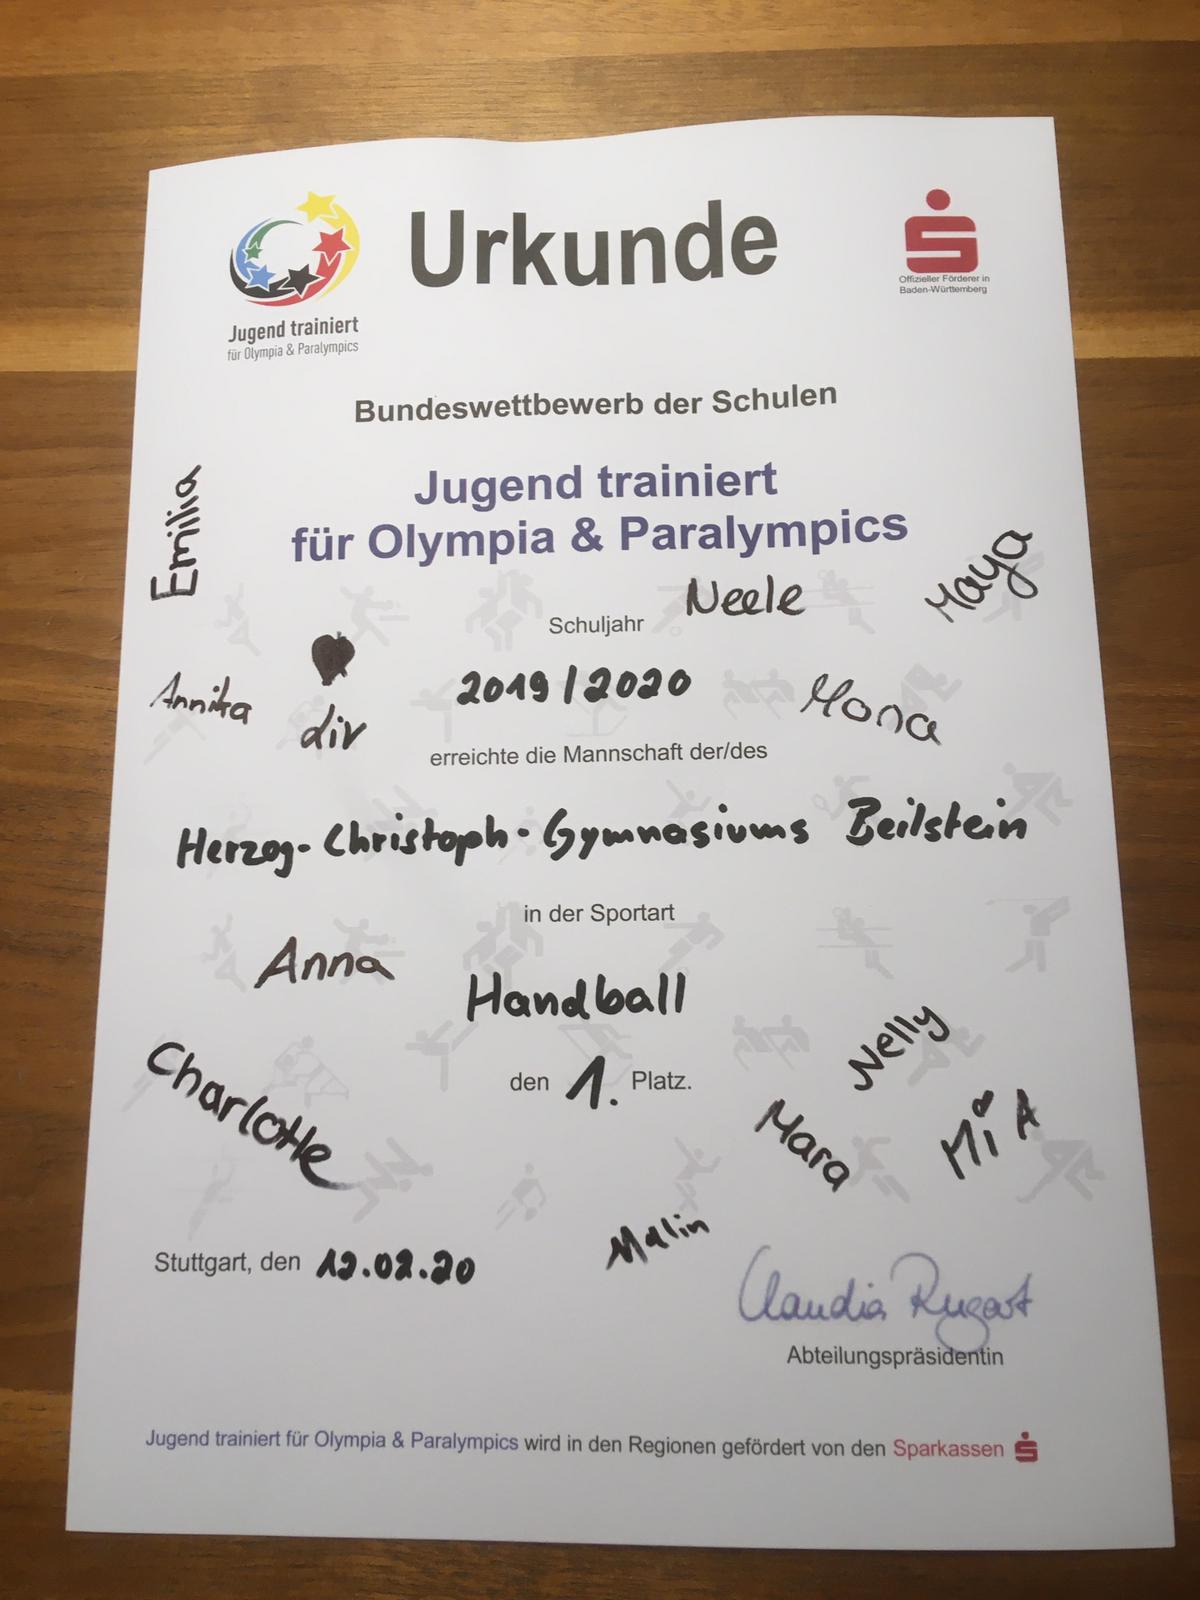 Urkunde
Jugend trainiert
für Olympia & Paralympics
Offizieller Förderer in
Baden-Württemberg
Bundeswettbewerb der Schulen
Jugend trainiert
für Olympia & Paralympics
Emilia
Neele
Maya
Schuljahr
Annika
2019/2020
Mona
erreichte die Mannschaft der/des
Herzog-Christoph-Gymnasiums Beilstein
in der Sportart
Anna
Handball
Nelly
den 1. Platz.
Charlotte
Mara
MiA
Malin
Stuttgart, den 12.02.20
Claudia Rugart
Abteilungspräsidentin
Jugend trainiert für Olympia & Paralympics wird in den Regionen gefördert von den Sparkassen